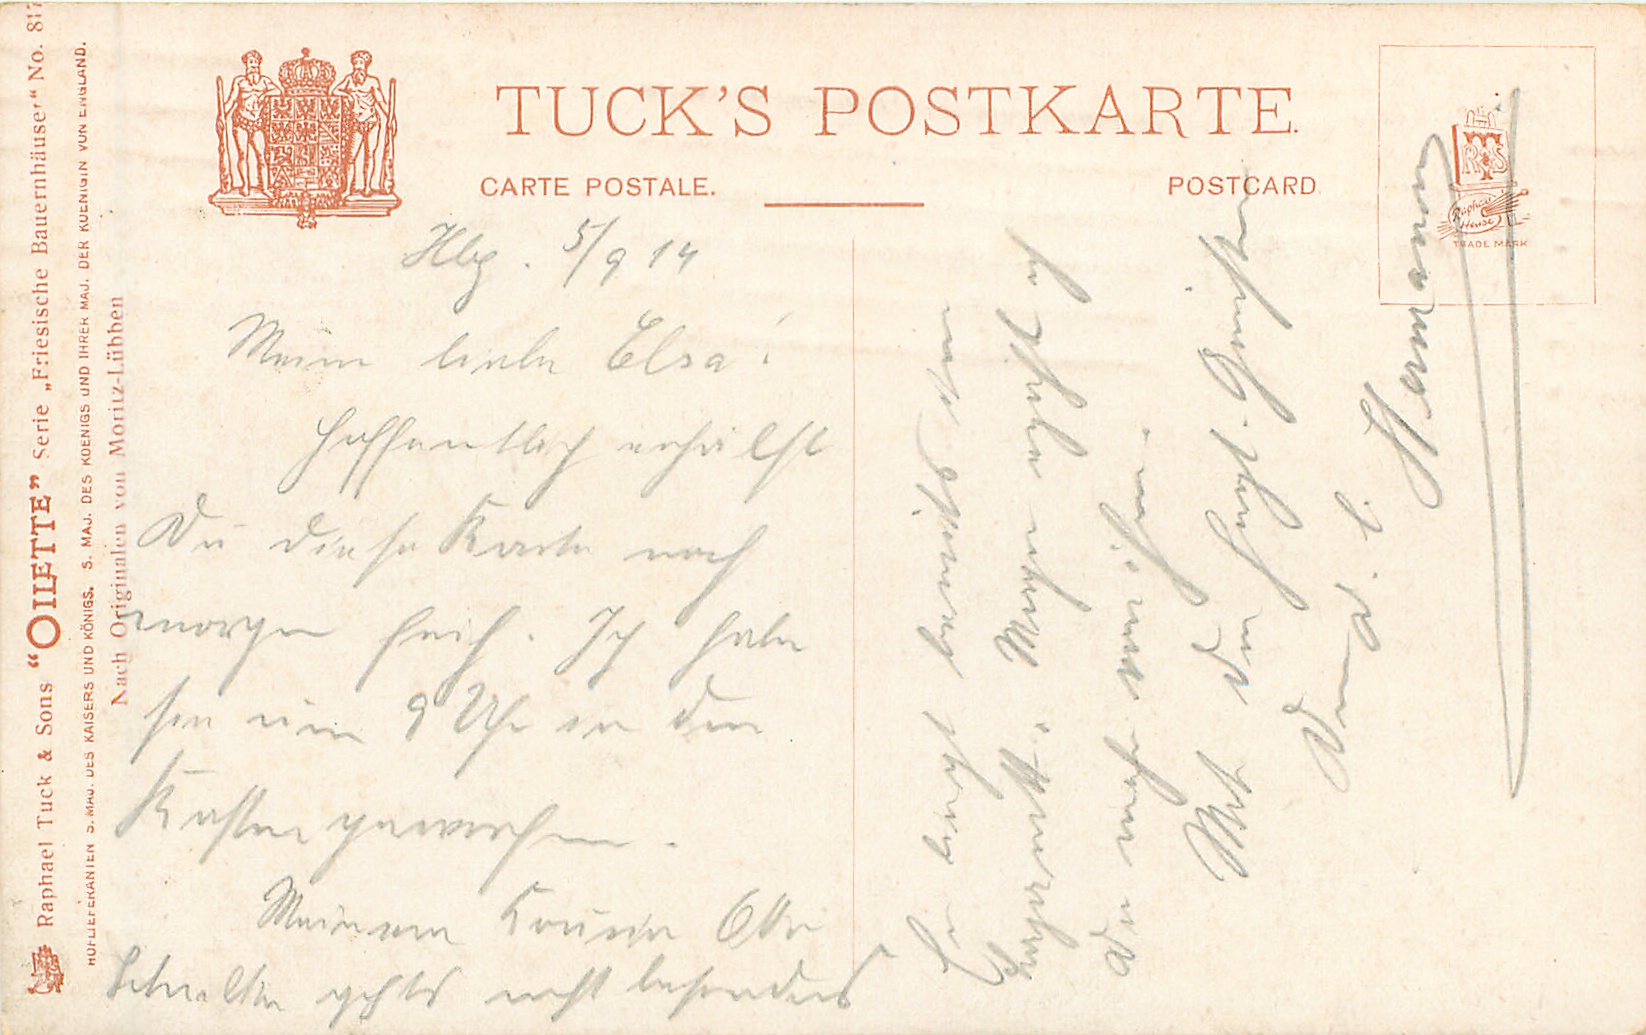 TUCK'S POSTKARTE.
CARTE POSTALE.
POSTCARD
RTS
Raphael
House
TRADE MARK
Raphael Tuck & Sons “OILETTE” Serie „Friesische Bauernhäuser“ No. 817
HOFLIEFERANTEN S. MAJ. DES KAISERS UND KÖNIGS. S. MAJ. DES KOENIGS UND IHRER MAJ. DER KOENIGIN VON ENGLAND.
Nach Originalen von Moritz-Lübben
Hbg. 5/9 14
Meine liebe Elsa!
Hoffentlich erhälst
Du diese Karte noch
morgen früh. Ich habe
sie um 9 Uhr in den
Kasten geworfen.
Meinem Cousin Otto
geht es nicht besonders
Er liegt
Lazarett. Morgen
Mit den Grüßen
Dein l. Hermann